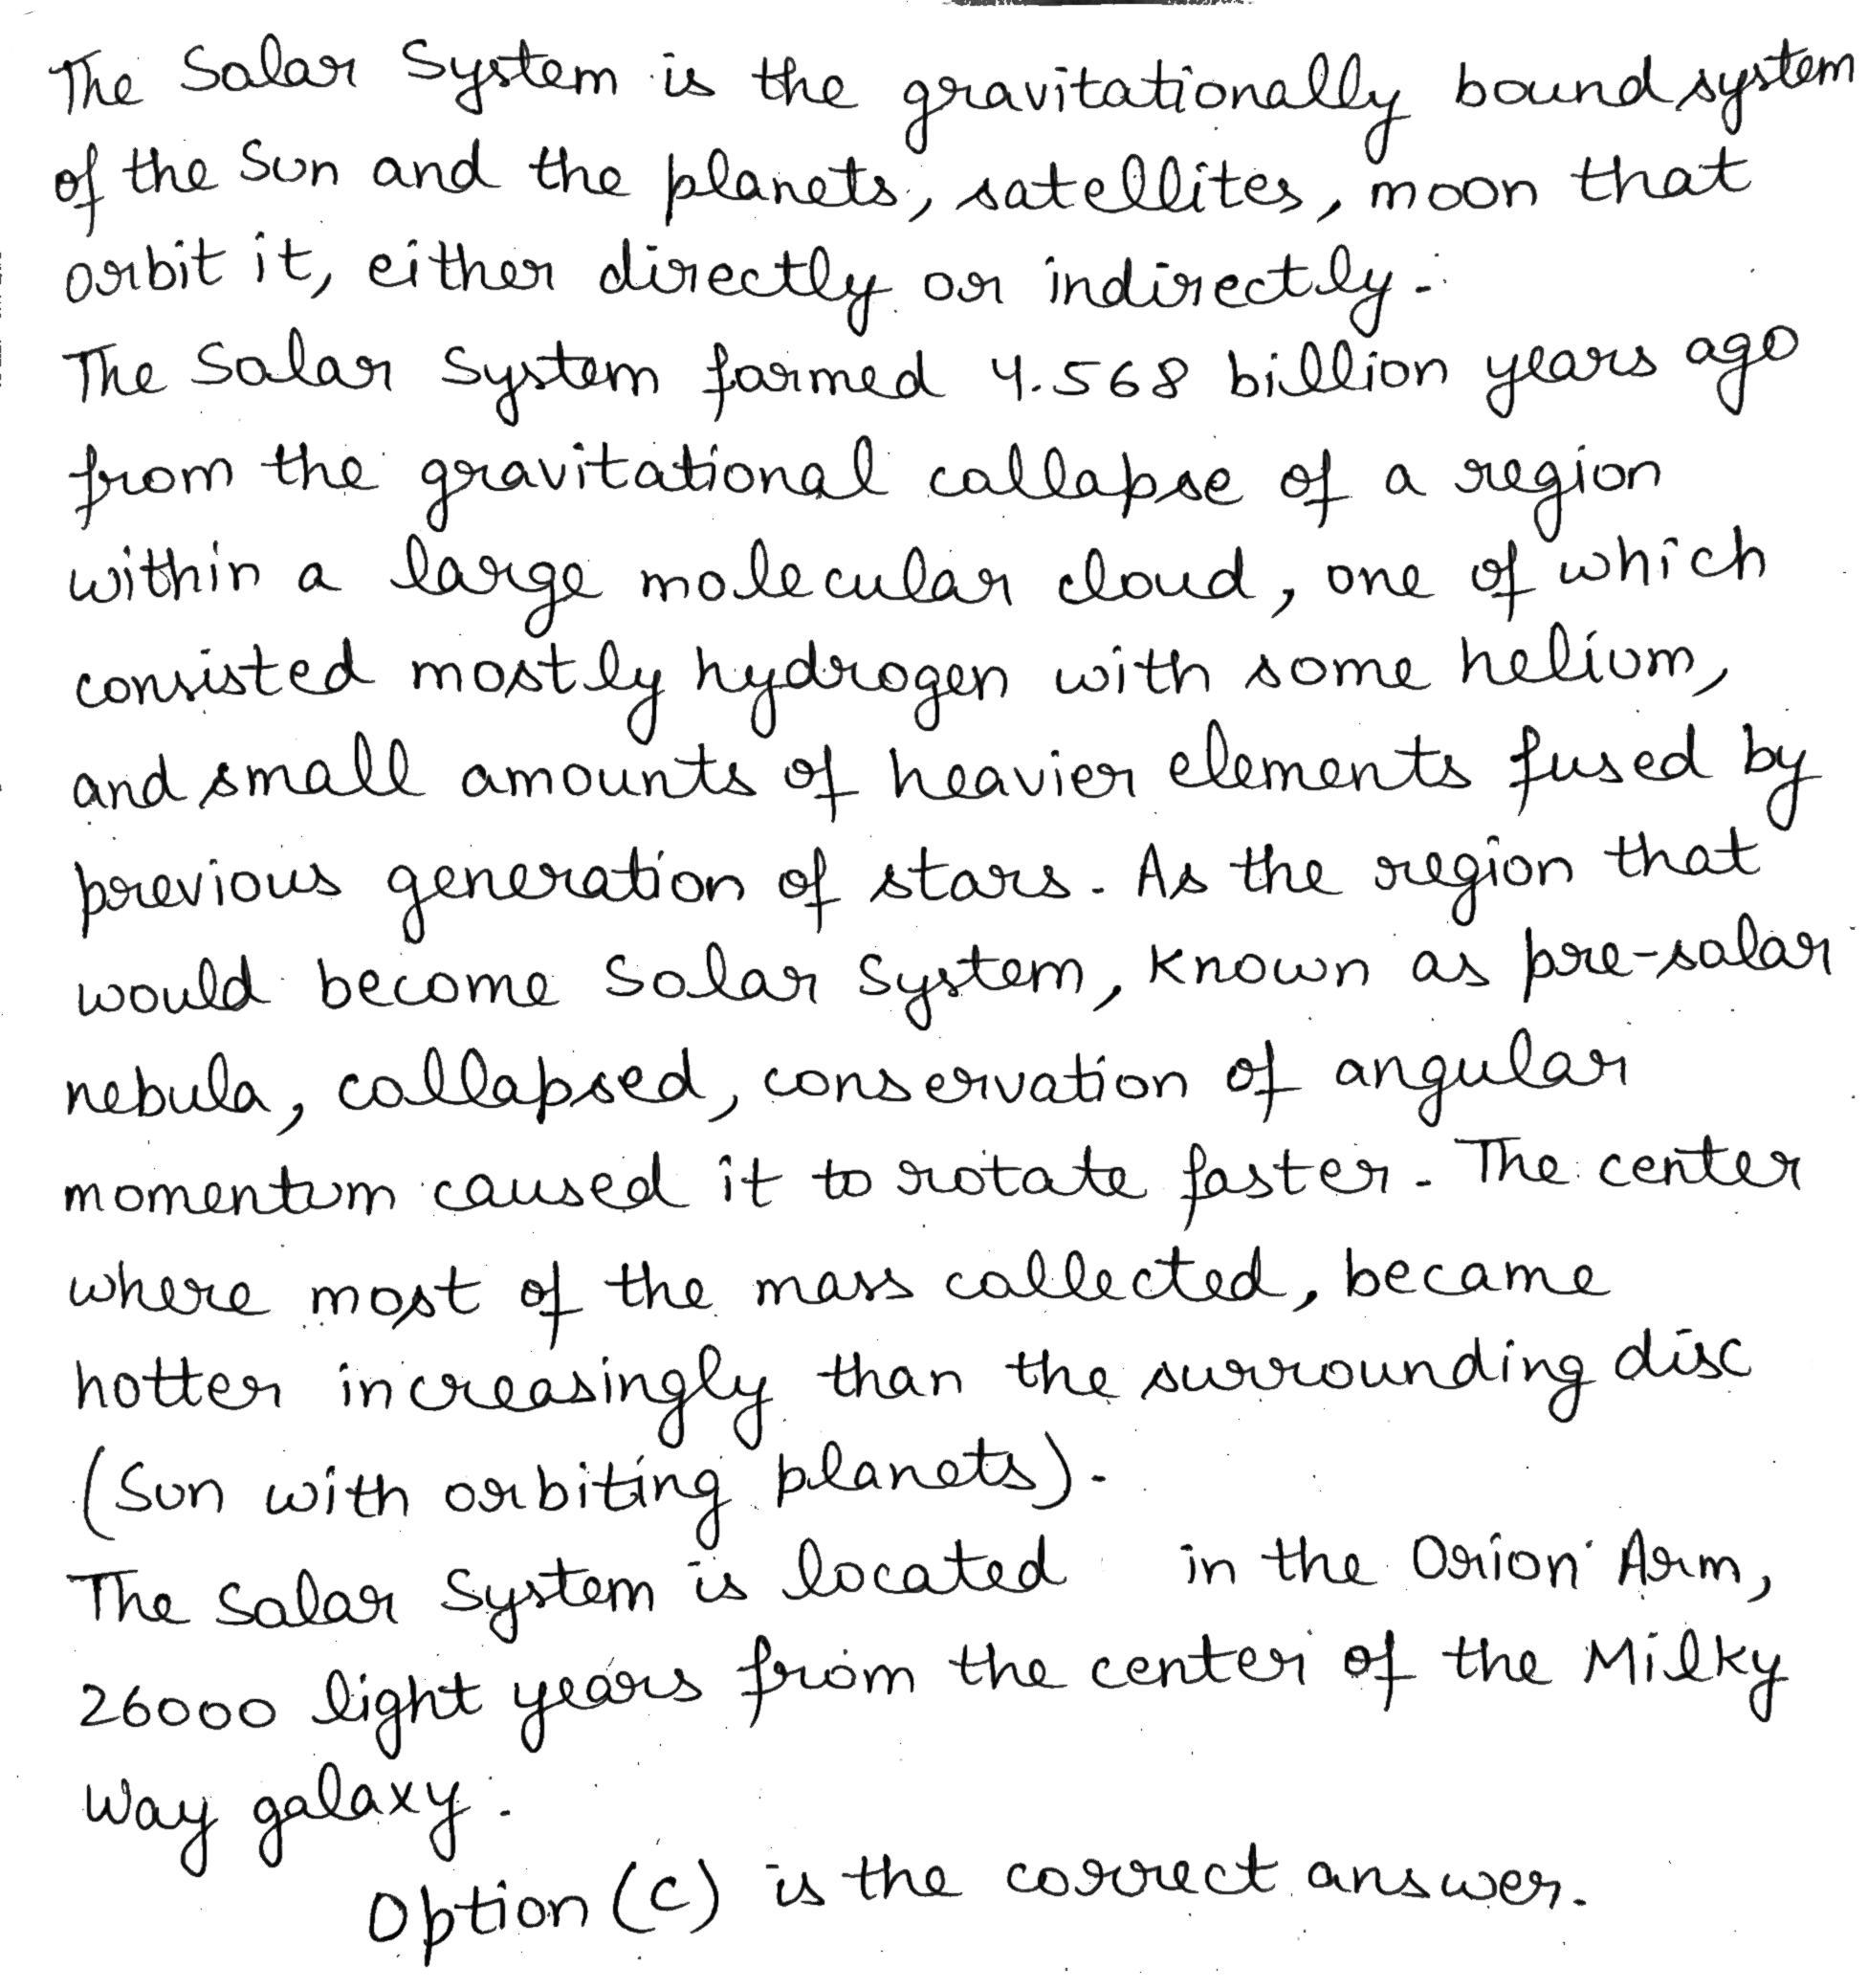 The Solar System is the gravitationally bound system
of the Sun and the planets, satellites, moon that
orbit it, either directly or indirectly.
The Solar System formed 4.568 billion years ago
from the gravitational collapse of a region
within a large molecular cloud, one of which
consisted mostly hydrogen with some helium,
and small amounts of heavier elements fused by
previous generation of stars. As the region that
would become Solar System, known as pre-solar
nebula, collapsed, conservation of angular
momentum caused it to rotate faster. The center
where most of the mass collected, became
hotter increasingly than the surrounding disc
(Sun with orbiting planets).
The Solar System is located in the Orion Arm,
26000 light years from the center of the Milky
Way galaxy.
Option (C) is the correct answer.